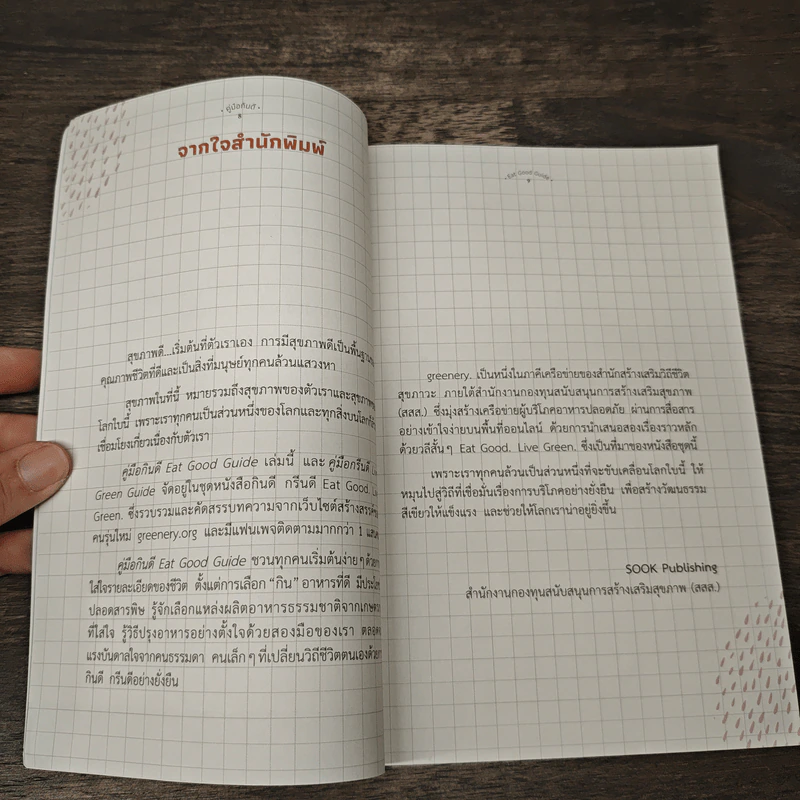 คู่มือกินดี
จากใจสำนักพิมพ์
สุขภาพดี...เริ่มต้นที่ตัวเราเอง การมีสุขภาพดีเป็นพื้นฐาน
คุณภาพชีวิตที่ดีและเป็นสิ่งที่มนุษย์ทุกคนล้วนแสวงหา
สุขภาพในที่นี้ หมายรวมถึงสุขภาพของตัวเราและสุขภาพ
โลกใบนี้ เพราะเราทุกคนเป็นส่วนหนึ่งของโลกและทุกสิ่งบนโลก
เชื่อมโยงเกี่ยวเนื่องกับตัวเรา
คู่มือกินดี Eat Good Guide เล่มนี้ และ คู่มือกรีนดี
Green Guide จัดอยู่ในชุดหนังสือกินดี กรีนดี Eat Good.
Green. ซึ่งรวบรวมและคัดสรรบทความจากเว็บไซต์สร้างสรรค์
คนรุ่นใหม่ greenery.org และมีแฟนเพจติดตามมากกว่า 1
คู่มือกินดี Eat Good Guide ชวนทุกคนเริ่มต้นง่ายๆ
ใส่ใจรายละเอียดของชีวิต ตั้งแต่การเลือก “กิน” อาหารที่ดี
ปลอดสารพิษ รู้จักเลือกแหล่งผลิตอาหารธรรมชาติจาก
ที่ใส่ใจ รู้วิธีปรุงอาหารอย่างตั้งใจด้วยสองมือของเรา
แรงบันดาลใจจากคนธรรมดา คนเล็กๆ ที่เปลี่ยนวิถีชีวิตตนเอง
กินดี กรีนดีอย่างยั่งยืน
Eat Good Guide
greenery. เป็นหนึ่งในภาคีเครือข่ายของสำนักสร้างเสริมวิถีชีวิต
สุขภาวะ ภายใต้สำนักงานกองทุนสนับสนุนการสร้างเสริมสุขภาพ
(สสส.) ซึ่งมุ่งสร้างเครือข่ายผู้บริโภคอาหารปลอดภัย ผ่านการสื่อสาร
อย่างเข้าใจง่ายบนพื้นที่ออนไลน์ ด้วยการนำเสนอสองเรื่องราวหลัก
ด้วยวลีสั้นๆ Eat Good. Live Green. ซึ่งเป็นที่มาของหนังสือชุดนี้
เพราะเราทุกคนล้วนเป็นส่วนหนึ่งที่จะขับเคลื่อนโลกใบนี้ ให้
หมุนไปสู่วิถีที่เชื่อมั่นเรื่องการบริโภคอย่างยั่งยืน เพื่อสร้างวัฒนธรรม
สีเขียวให้แข็งแรง และช่วยให้โลกเราน่าอยู่ยิ่งขึ้น
SOOK Publishing
สำนักงานกองทุนสนับสนุนการสร้างเสริมสุขภาพ (สสส.)